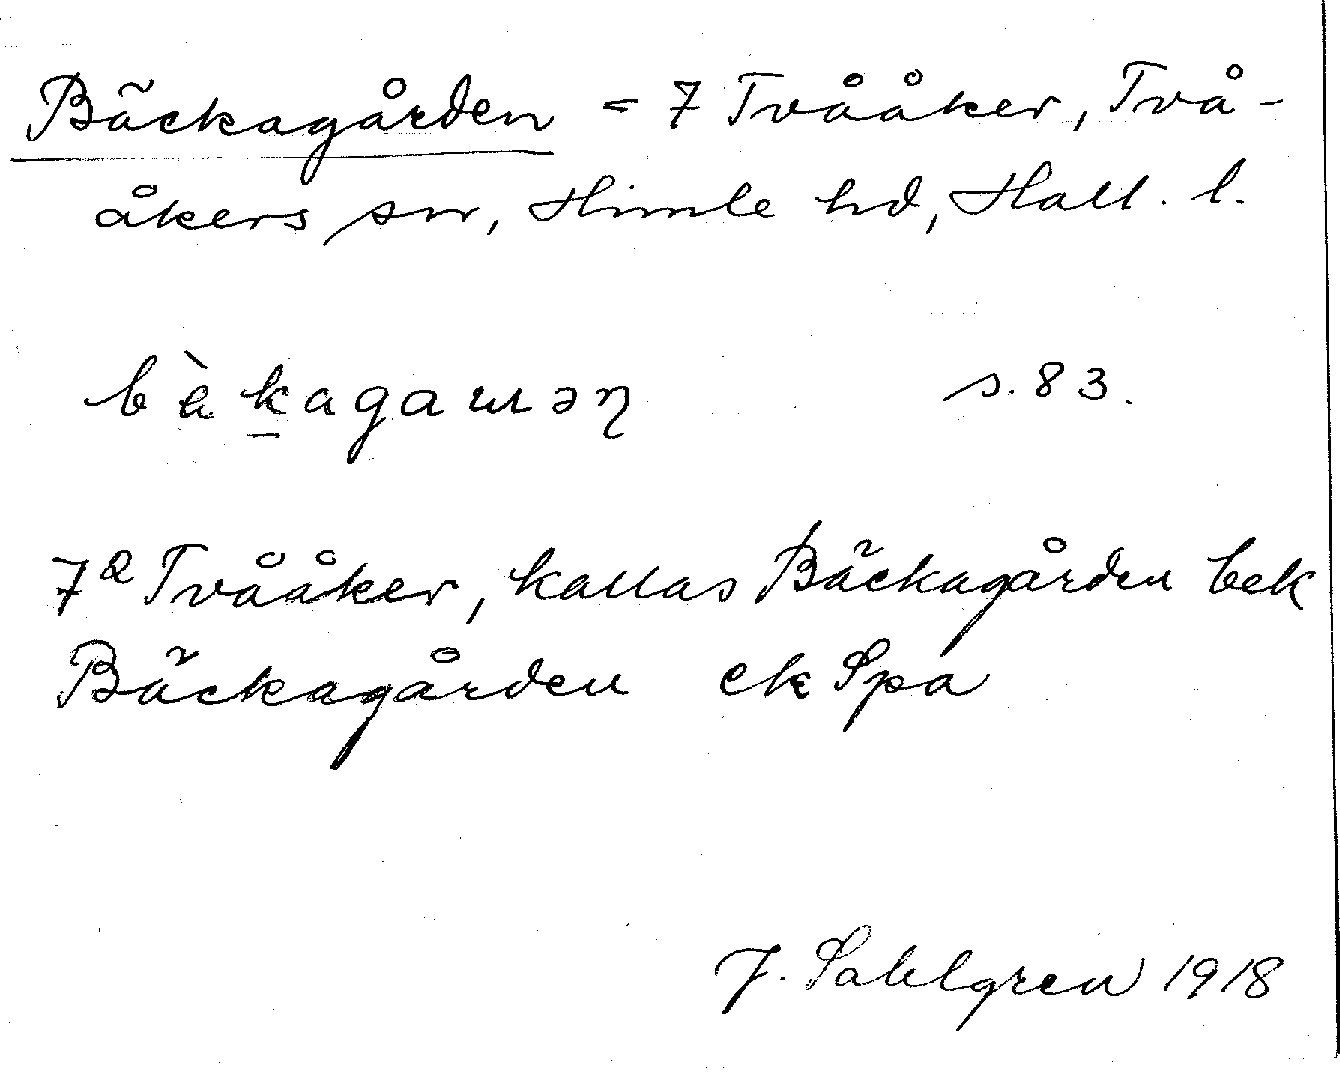 Bäckagården = 7 Tvååker, Två-
åkers sn, Himle hd, Hall. l.
s. 83.
7² Tvååker, kallas Bäckagården bek
Bäckagården ek Spa
J. Sahlgren 1918